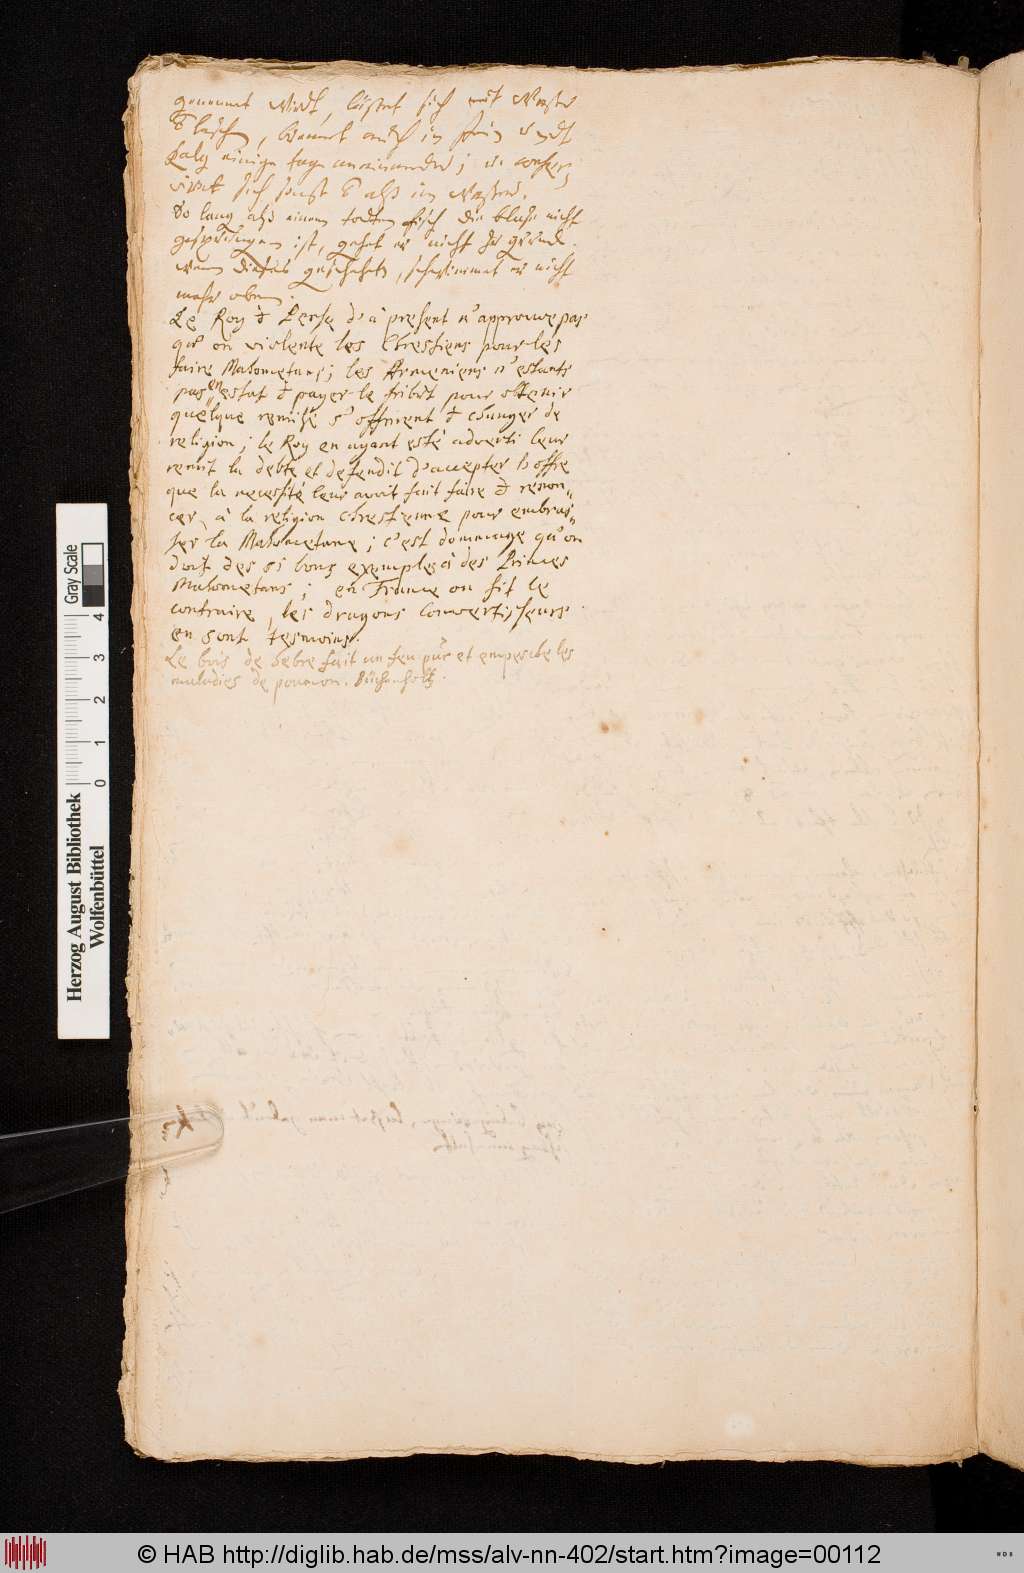 genennet wirdt, leschet sich mit Wasser
leschen, brennet auch in
Kalg einige tage unein; u. conser,
virt sich sonst als im Wasser.
So lang als einem todten fisch die blase nicht
gesprungen ist, gehet er nicht zu grunde.
wenn dieses geschehen, schwimmet er nicht
mehr oben.
Le Roy d Perse d'à present n'approuve pas
qu'on violente les Chrestiens pour les
faire Mahometans; les Armeniens n'estants
pas en estat d payer le tribut pour obtenir
quelque remise s'offrirent d changer de
religion; le Roy en ayant esté adverti leur
remit la debte et defendit d'accepter l'offre
que la necessité leur avoit fait faire d renon„
cer à la religion Chrestienne pour embras„
ser la Mahometane; c'est dommage qu'on
doit des si bons exemples à des Princes
Mahometans; en France on fit le
contraire, les dragons Convertisseurs
en sont tesmoins.
Le bois de hebre fait un feu pur et empesche les
maladies de poumon. Büchenholtz.
Herzog August Bibliothek
Wolfenbüttel
0 1 2 3 4
Gray Scale
© HAB http://diglib.hab.de/mss/alv-nn-402/start.htm?image=00112